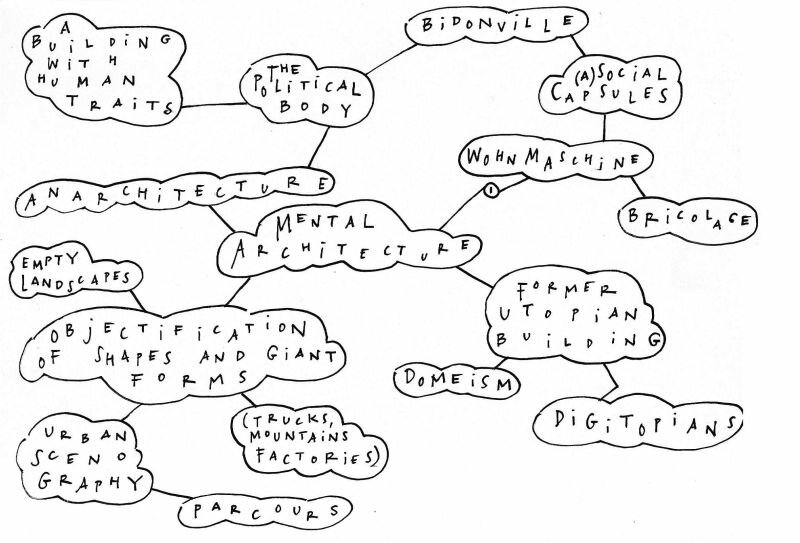 A
BUiLDiNG
WiTH
HUMAN
TRAiTS
THE
POLiTiCAL
BODY
BiDONViLLE
(A)SOCiAL
CAPSULES
WOHNMASCHiNE
1
BRiCOLAGE
ANARCHiTECTURE
MENTAL
ARCHiTECTURE
EMPTY
LANDSCAPES
OBJECTiFiCATiON
OF SHAPES AND GiANT
FORMS
FORMER
UTOPiAN
BUiLDiNG
DOMEiSM
DiGiTOPiANS
URBAN
SCENO
GRAPHY
(TRUCKS,
MOUNTAiNS
FACTORiES)
PARCOURS